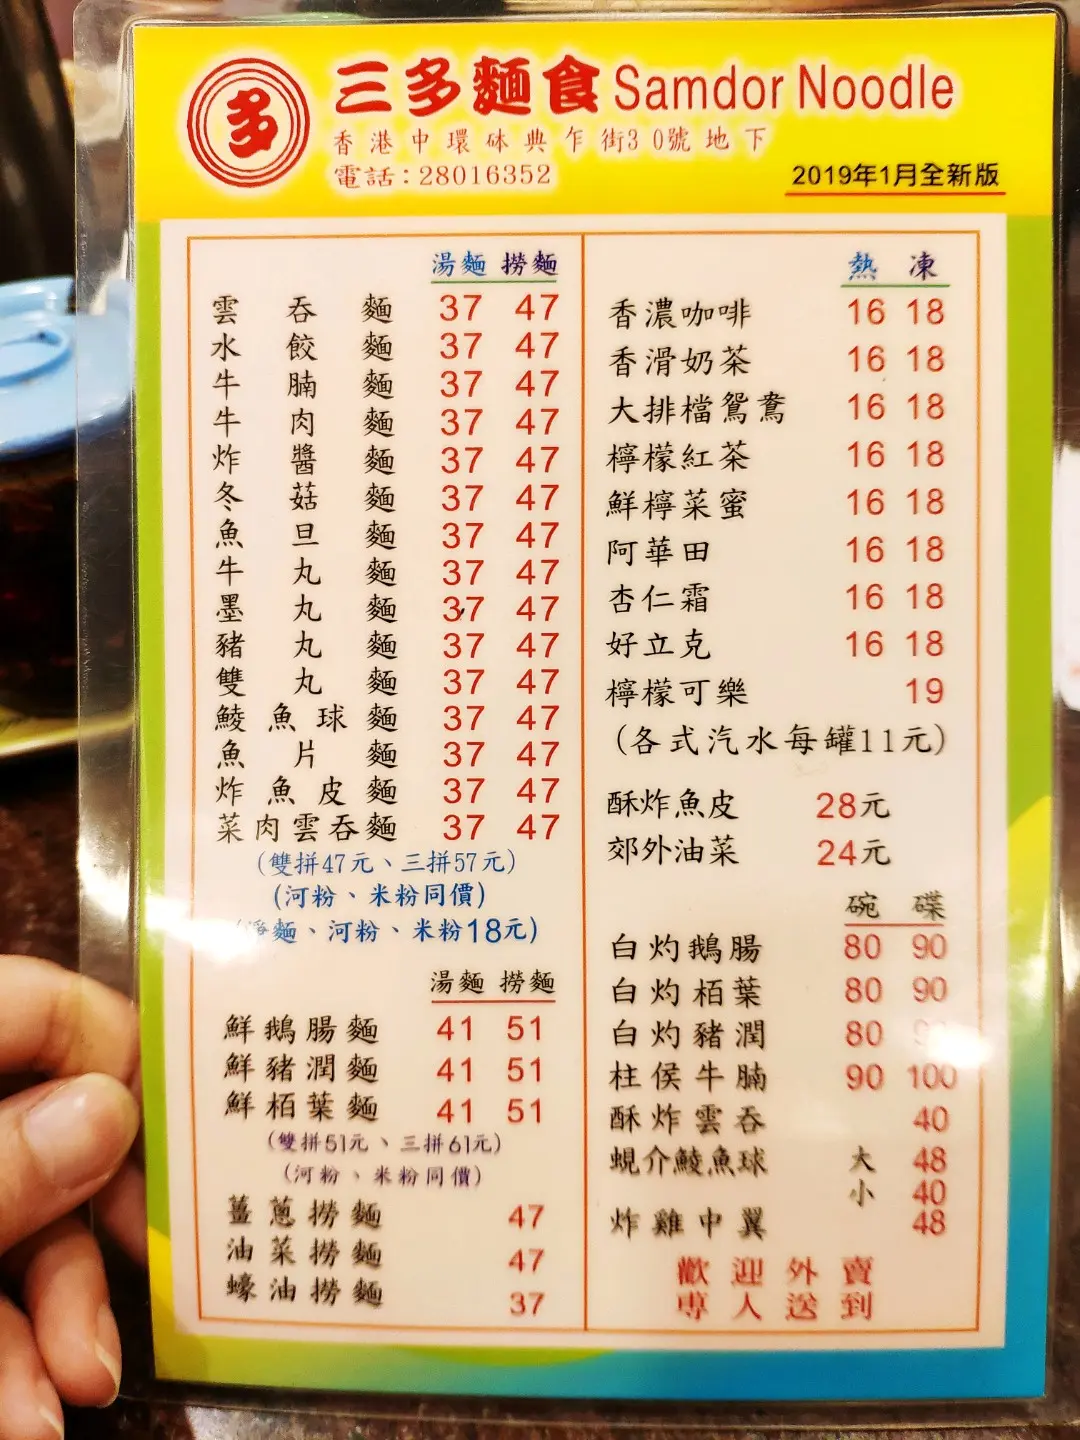 多
三多麵食 Samdor Noodle
香港中環砵典乍街30號地下
電話：28016352
2019年1月全新版
湯麵 撈麵
雲吞麵 37 47
水餃麵 37 47
牛腩麵 37 47
牛肉麵 37 47
炸醬麵 37 47
冬菇麵 37 47
魚旦麵 37 47
牛丸麵 37 47
墨丸麵 37 47
豬丸麵 37 47
雙丸麵 37 47
鯪魚球麵 37 47
魚片麵 37 47
炸魚皮麵 37 47
菜肉雲吞麵 37 47
(雙拼47元、三拼57元)
(河粉、米粉同價)
麵、河粉、米粉18元)
湯麵 撈麵
鮮鵝腸麵 41 51
鮮豬潤麵 41 51
鮮栢葉麵 41 51
(雙拼51元、三拼61元)
(河粉、米粉同價)
薑蔥撈麵 47
油菜撈麵 47
蠔油撈麵 37
熱 凍
香濃咖啡 16 18
香滑奶茶 16 18
大排檔鴛鴦 16 18
檸檬紅茶 16 18
鮮檸菜蜜 16 18
阿華田 16 18
杏仁霜 16 18
好立克 16 18
檸檬可樂 19
(各式汽水每罐11元)
酥炸魚皮 28元
郊外油菜 24元
碗 碟
白灼鵝腸 80 90
白灼栢葉 80 90
白灼豬潤 80
柱侯牛腩 90 100
酥炸雲吞 40
蜆介鯪魚球 大 48
小 40
炸雞中翼 48
歡迎外賣
專人送到